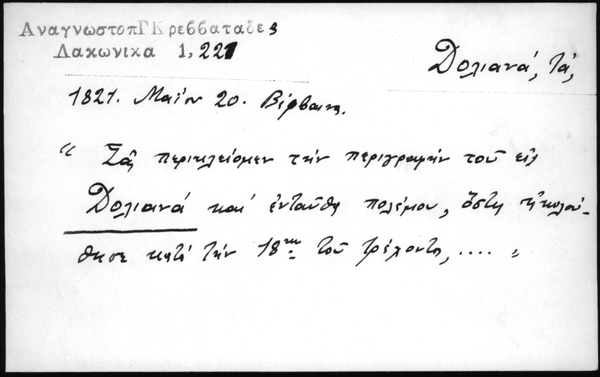 ΑναγνωστοπΓΚρεββαταδες
Λακωνικα 1,221
Δολιανά, τά,
1821. Μαΐου 20. Βέρβαινα.
“ Σᾶς περικλείομεν τήν περιγραφήν τοῦ εἰς
Δολιανά καί ἐνταῦθα πολέμου, ὅστις ἠκολού-
θησε κατά τήν 18ην τοῦ τρέχοντος, .... „